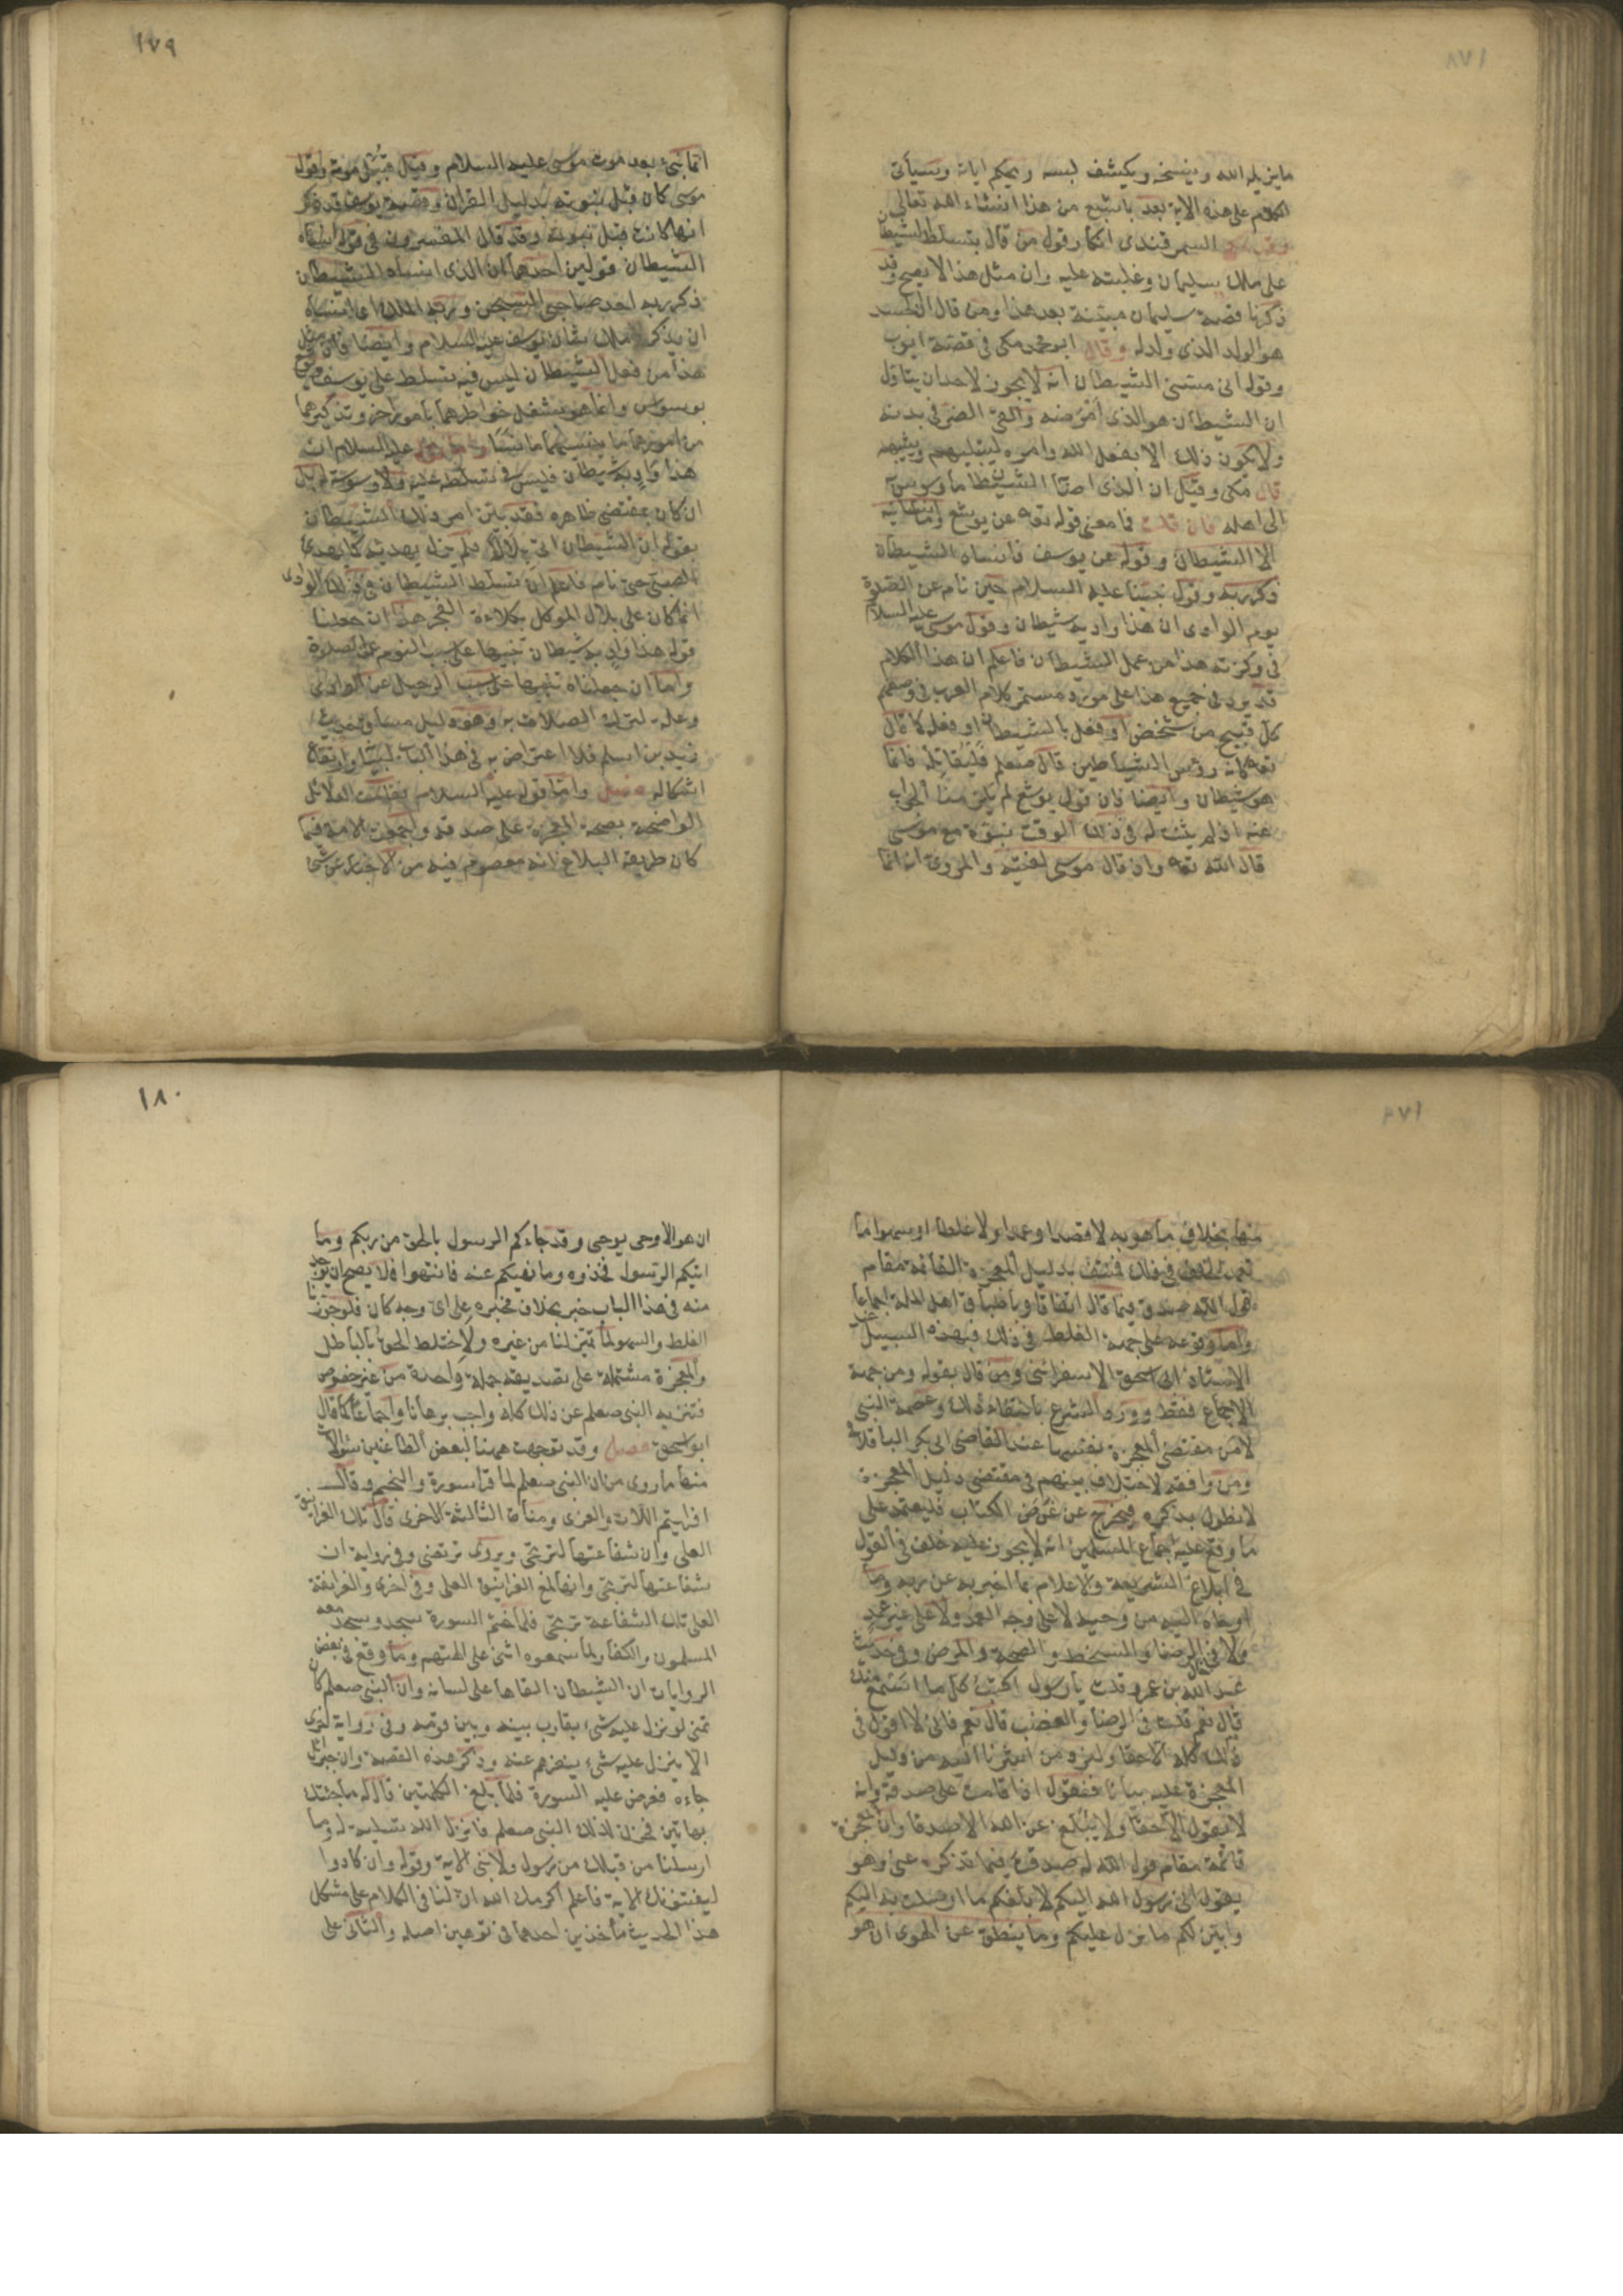 ما يزيله الله وينسخه ويكشف لبسه ويحكم اياته وسيأتى
الكلام على هذه الاية بعد باشبع من هذا انشاء الله تعالى
السمرقندى انكار قول من قال بتسلط الشيطان
على ملك سليمان وغلبته عليه وان مثل هذا لا يصح وقد
ذكرنا قصة سليمان مبينة بعد هذا ومن قال ان الجسد
هو الولد الذى ولد له وقال ابو محمد مكى فى قصة ايوب
وقوله انى مسنى الشيطان انه لا يجوز لاحد ان يتأول
ان الشيطان هو الذى امرضه والقى الضر فى بدنه
ولا يكون ذلك الا بفعل الله وامره ليبتليهم ويثيبهم
قال مكى وقيل ان الذى اصابه الشيطان ما وسوس به
الى اهله فان قلت فما معنى قوله تعه عن يوشع وما انسانيه
الا الشيطان وقوله عن يوسف فانساه الشيطان
ذكر ربه وقول نبينا عليه السلام حين نام عن الصلوة
يوم الوادى ان هذا واد به شيطان وقول موسى عليه السلام
فى وكزته هذا من عمل الشيطان فاعلم ان هذا الكلام
قد يرد فى جميع هذا على مورد مستمر كلام العرب فى وصفهم
كل قبيح من شخص او فعل بالشيطان او فعله كما قال
تعه كانه رؤس الشياطين قال صعلم فليقاتله فانما
هو شيطان وايضا فان قول يوشع لم يلزمنا الجواب
عنه اذ لم يثبت له فى ذلك الوقت نبوة مع موسى
قال الله تعه واذ قال موسى لفتيه والمروى انه انما
١٧٩
انما نبئ بعد موت موسى عليه السلام وقيل قبيل موته وقول
موسى كان قبل نبوته بدليل القران وقصة يوسف قد ذكر
انها كانت قبل نبوته وقد قال المفسرون فى قوله انساه
الشيطان قولين احدهما ان الذى انساه الشيطان
ذكر ربه احد صاحبى السجن وربه الملك اى انساه
ان يذكر للملك شأن يوسف عليه السلام وايضا فان مثل
هذا من فعل الشيطان ليس فيه تسلط على يوسف ويوشع
بوسواس وانما هو بشغل خواطرهما بامور اخر وتذكيرهما
من امورهما ما ينسيهما ما نسيا واما قوله عليه السلام ان
هذا واد به شيطان فليس فيه تسلطه عليه ولا وسوسته له بل
ان كان بمقتضى ظاهره فقد بين امر ذلك الشيطان
بقوله ان الشيطان اتى بلالا فلم يزل يهديه كما يهدى
الصبى حتى نام فاعلم ان تسلط الشيطان فى ذلك الوادى
انما كان على بلال الموكل بكلاءة الفجر هذا ان جعلنا
قوله هذا واد به شيطان تنبيها على سبب النوم عن الصلوة
واما ان جعلناه تنبيها على سبب الرحيل عن الوادى
وعلة لترك الصلاة به وهو دليل مساق حديث
زيد بن اسلم فلا اعتراض به فى هذا الباب لبيانه وارتفاع
اشكاله فصل واما قوله عليه السلام فقامت الدلائل
الواضحة بصحة المعجزة على صدقه واجمعت الامة فيما
كان طريقه البلاغ انه معصوم فيه من الاخبار عن شئ
منها بخلاف ما هو به لا قصدا وعمدا ولا غلطا او سهوا اما
تعمد الخلف فى ذلك فمنتف بدليل المعجزة القائمة مقام
قول الله صدق فيما قال اتفاقا وباطباق اهل الملة اجماعا
واما وقوعه على جهة الغلط فى ذلك فبهذه السبيل عند
الاستاذ ابى اسحق الاسفراينى ومن قال بقوله ومن جهة
الاجماع فقط وورد الشرع بانتفاء ذلك وعصمة النبى
لا من مقتضى المعجزة نفسها عند القاضى ابى بكر الباقلانى
ومن وافقه لاختلاف بينهم فى مقتضى دليل المعجزة
لا نطول بذكره فيخرج عن غرض الكتاب فليعتمد على
ما وقع عليه اجماع المسلمين انه لا يجوز عليه خلف فى القول
فى ابلاغ الشريعة والاعلام بما اخبر به عن ربه وما
اوحاه اليه من وحيه لا على وجه العمد ولا على غير عمد
ولا فى الرضا والسخط والصحة والمرض وفى حديث
عبد الله بن عمرو قلت يا رسول اكتب كل ما اسمع منك
قال نعم قلت فى الرضا والغضب قال نعم فانى لا اقول فى
ذلك كله الا حقا ولنزد من اشرنا اليه من دليل
المعجزة عليه بيانا فنقول اذا قامت على صدقه وانه
لا يقول الا حقا ولا يبلغ عن الله الا صدقا وان المعجزة
قائمة مقام قول الله له صدقت فيما تذكره عنى وهو
يقول انى رسول الله اليكم لابلغكم ما ارسلت به اليكم
وابين لكم ما نزل عليكم وما ينطق عن الهوى ان هو
١٨٠
ان هو الا وحى يوحى وقد جاءكم الرسول بالحق من ربكم وما
اتيكم الرسول فخذوه وما نهيكم عنه فانتهوا فلا يصح ان يوجد
منه فى هذا الباب خبر بخلاف مخبره على اى وجه كان فلو جوزنا
الغلط والسهو لما تميز لنا من غيره ولاختلط الحق بالباطل
والمعجزة مشتملة على تصديقه جملة واحدة من غير خصوص
فتنزيه النبى صعلم عن ذلك كله واجب برهانا واجماعا كما قال
ابو اسحق فصل وقد توجهت ههنا لبعض الطاعنين سؤالات
منها ما روى من ان النبى صعلم لما قرا سورة والنجم وقال
افرايتم اللات والعزى ومناة الثالثة الاخرى قال تلك الغرانيق
العلى وان شفاعتها لترتجى ويروى ترتضى وفى رواية ان
شفاعتها لترتجى وانها لمع الغرانيق العلى وفى اخرى والغرانقة
العلى تلك الشفاعة ترتجى فلما ختم السورة سجد وسجد معه
المسلمون والكفار لما سمعوه اثنى على الهتهم وما وقع فى بعض
الروايات ان الشيطان القاها على لسانه وان النبى صعلم كان
تمنى لو نزل عليه شئ يقارب بينه وبين قومه وفى رواية اخرى
الا ينزل عليه شئ ينفرهم عنه وذكر هذه القصة وان جبرئل
جاءه فعرض عليه السورة فلما بلغ الكلمتين قال له ما جئتك
بهاتين فحزن لذلك النبى صعلم فانزل الله تسلية له وما
ارسلنا من قبلك من رسول ولا نبى الاية وقوله وان كادوا
ليفتنونك الاية فاعلم اكرمك الله ان لنا فى الكلام على مشكل
هذا الحديث مأخذين احدهما فى توهين اصله والثانى على